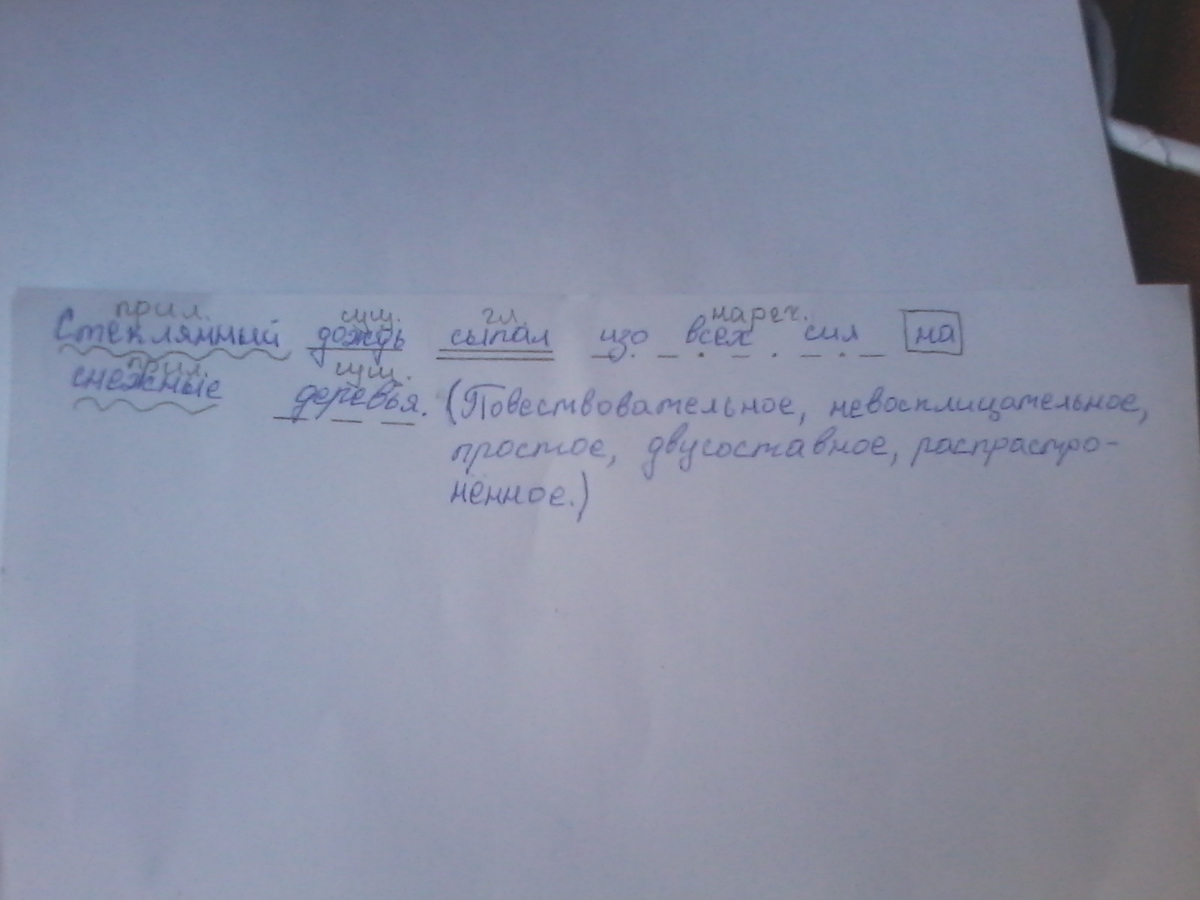 прил. сущ. гл. нареч.
Стеклянный дождь сыпал изо всех сил на
прил. сущ.
снежные деревья. (Повествовательное, невосплицательное,
простое, двусоставное, распрастро-
нённое.)